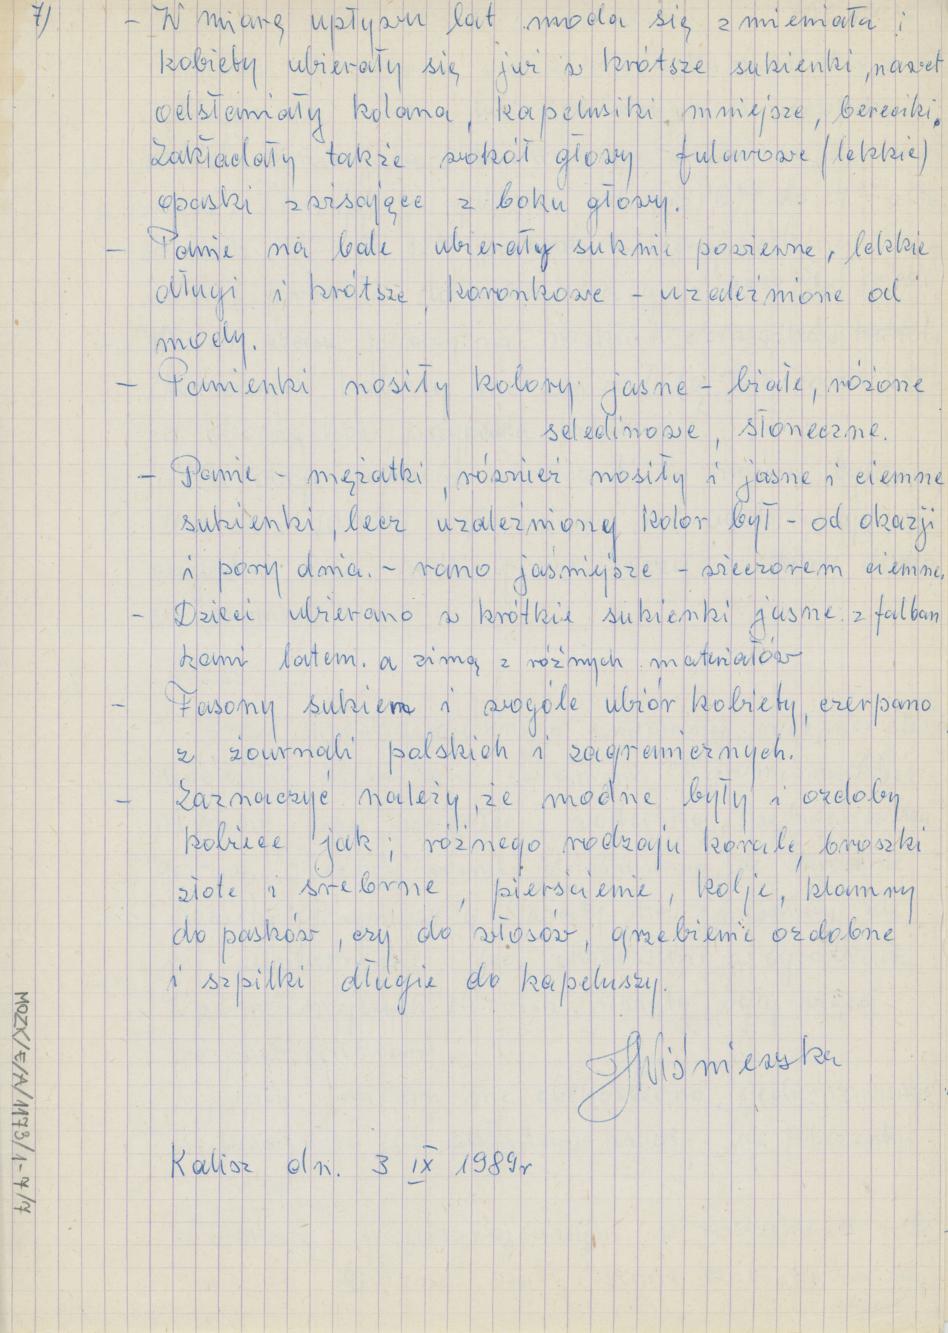 7) - W miarę upływu lat moda się zmieniała i
kobiety ubierały się już w krótsze sukienki, nawet
odsłaniały kolana, kapelusiki mniejsze, bereciki.
Zakładały także wokół głowy fularowe (lekkie)
opaski zwisające z boku głowy.
- Panie na bale ubierały suknie powiewne, lekkie
długi i krótsze, koronkowe - uzależnione od
mody.
- Panienki nosiły kolory jasne - białe, różowe
seledinowe, słoneczne.
- Panie - mężatki, również nosiły i jasne i ciemne
sukienki, lecz uzależniony kolor był - od okazji
i pory dnia. - rano jaśniejsze - wieczorem ciemne.
- Dzieci ubierano w krótkie sukienki jasne z falban
kami latem. a zimą z różnych materiałów
- Fasony sukien i wogóle ubiór kobiety, czerpano
z żournali polskich i zagranicznych.
- Zaznaczyć należy, że modne były i ozdoby
kobiece jak; różnego rodzaju korale, broszki
złote i srebrne, pierścienie, kolje, klamry
do pasków, czy do włosów, grzebienie ozdobne
i szpilki długie do kapeluszy.
Kalisz dn. 3 IX 1989r
MOZK/E/A/1173/1-7/7